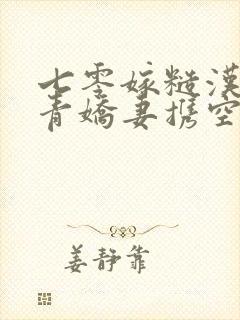 七零嫁糙漢
青嬌妻携空
姜靜靠